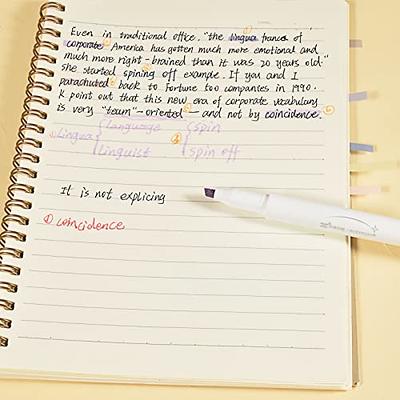 Even in traditional office, "the lingua franca of
corporate America has gotten much more emotional and
much more right-brained than it was 20 years old."
she started spining off example. If you and I
parachuted back to Fortune too companies in 1990.
K point out that this new era of corporate vocabulary
is very "team"-oriented — and not by coincidence.
lingua { language { spin
linguist spin off
It is not explicing
① coincidence